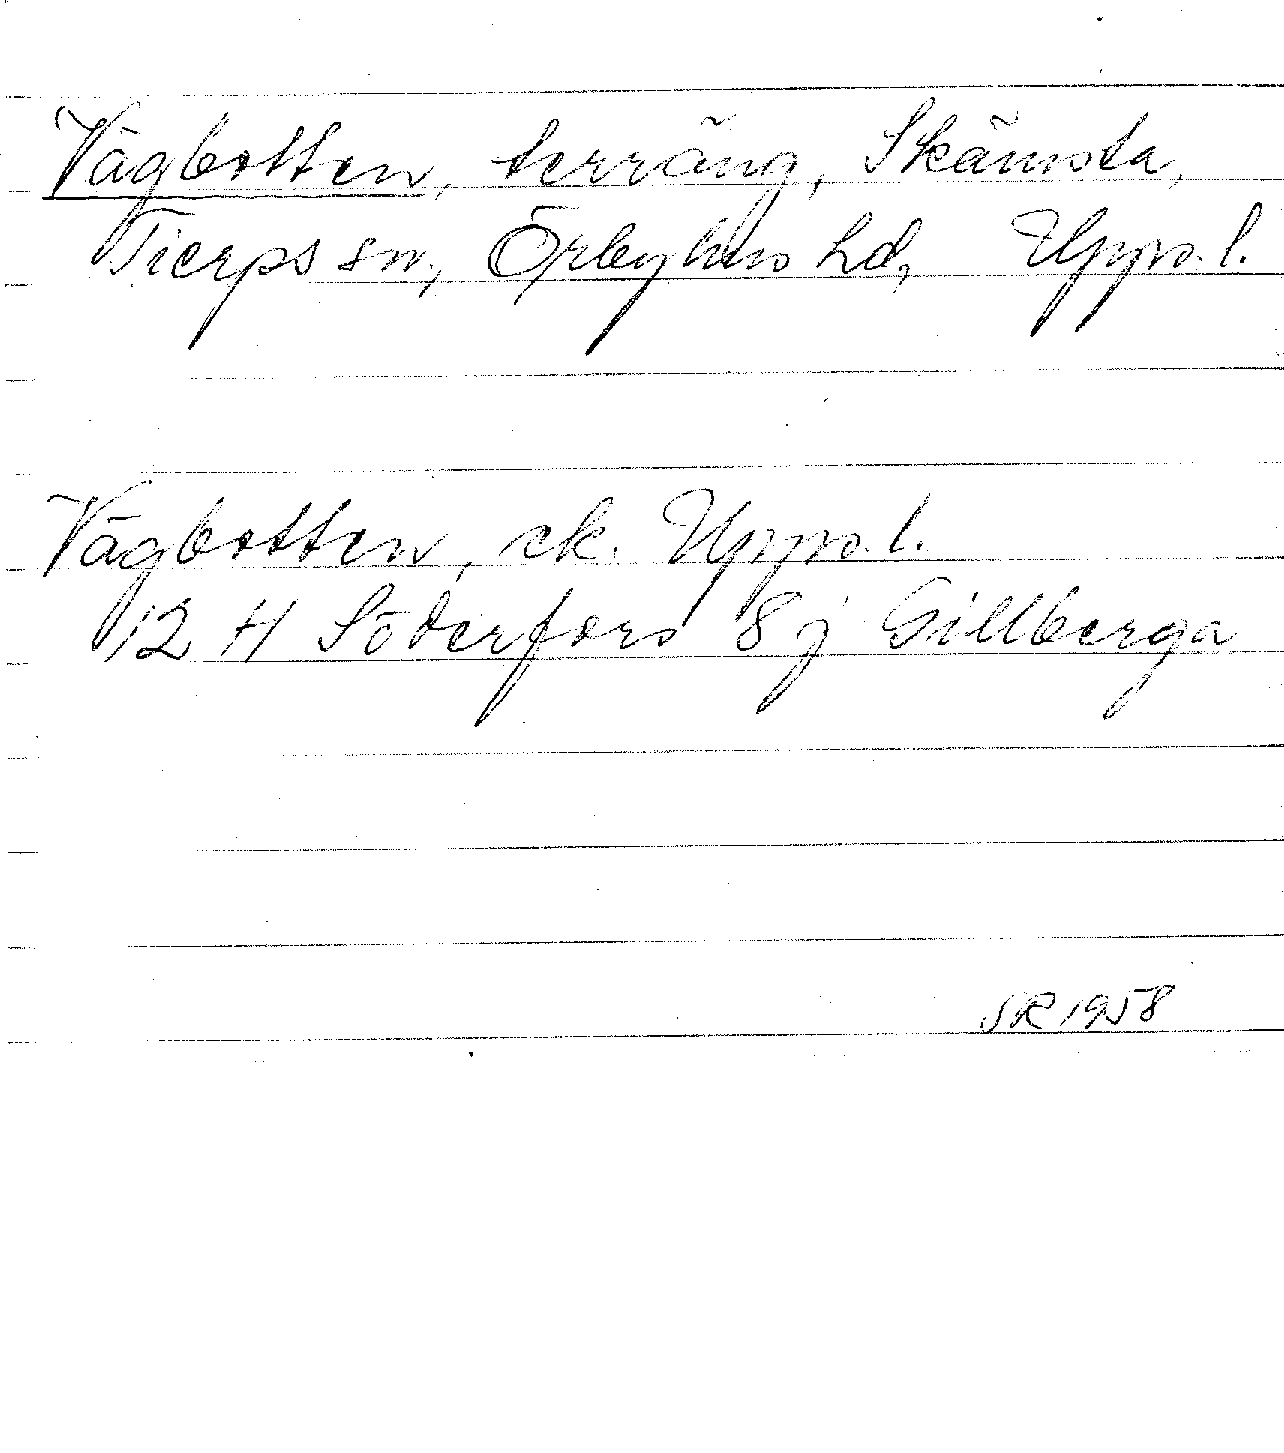 Vågbotten, terräng, Skämsta,
Tierps sn, Örbyhus hd, Upps. l.
Vågbotten, ek. Upps. l.
12 H Söderfors 8 j Gillberga
SR 1958